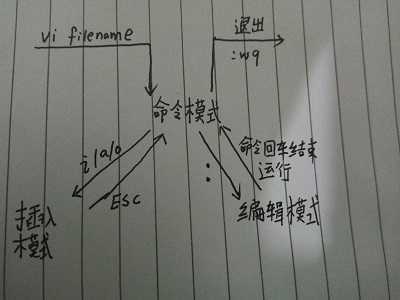 vi filename
退出
:wq
命令模式
i/a/o
ESC
:
命令回车结束
运行
插入
模式
编辑模式